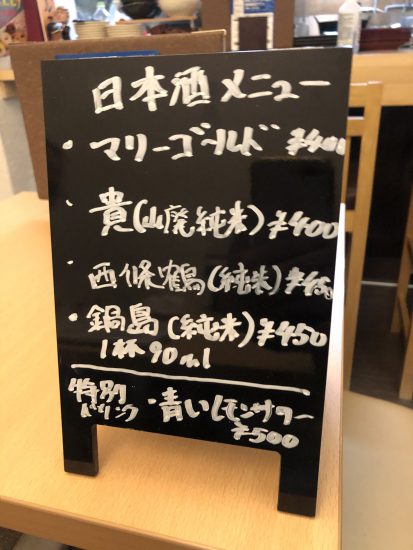 日本酒メニュー
・マリーゴールド ¥400
・貴(山廃純米)¥400
・西條鶴(純米)¥450
・鍋島(純米)¥450
1杯 90ml
特別ドリンク ・青いレモンサワー
¥500